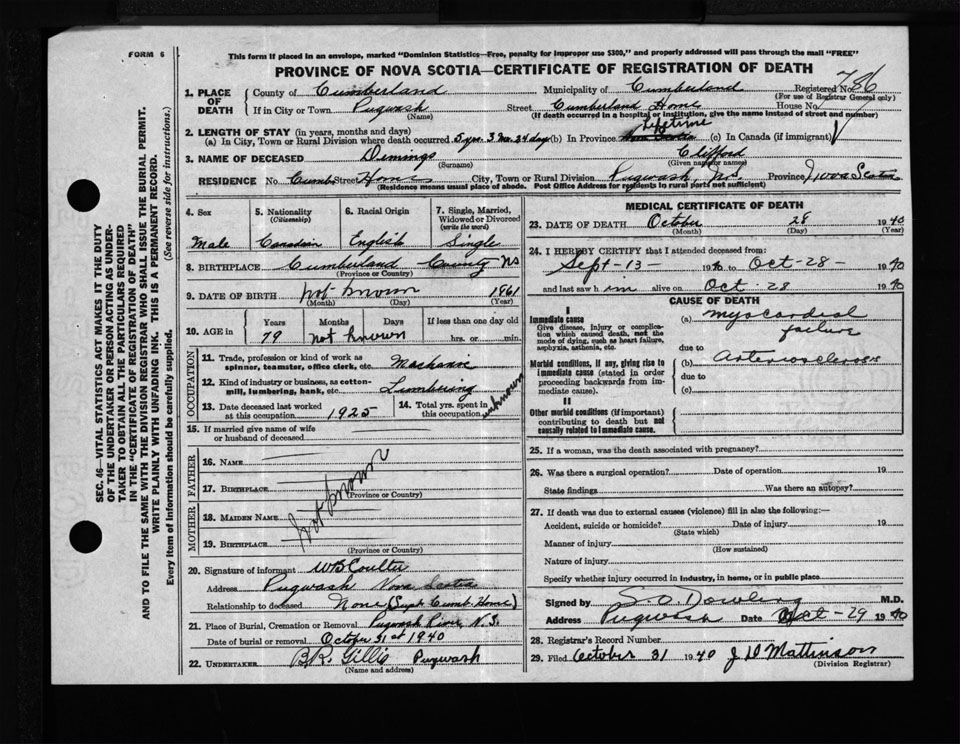 FORM 6
This form if placed in an envelope, marked "Dominion Statistics—Free, penalty for improper use $300," and properly addressed will pass through the mail "FREE"
PROVINCE OF NOVA SCOTIA—CERTIFICATE OF REGISTRATION OF DEATH
1. PLACE OF DEATH County of Cumberland Municipality of Cumberland Registered No. 786
(For use of Registrar General only)
If in City or Town Pugwash Street Cumberland Home House No.
(Name) (If death occurred in a hospital or institution, give the name instead of street and number)
2. LENGTH OF STAY (in years, months and days)
(a) In City, Town or Rural Division where death occurred 5 yrs. 3 mo. 24 days (b) In Province Lifetime (c) In Canada (if immigrant)
3. NAME OF DECEASED Demings Clifford
(Surname) (Given name or names)
RESIDENCE No. Cumb Street Home City, Town or Rural Division Pugwash, N.S. Province Nova Scotia
(Residence means usual place of abode. Post Office Address for residents in rural parts not sufficient)
SEC. 46—VITAL STATISTICS ACT MAKES IT THE DUTY
OF THE UNDERTAKER OR PERSON ACTING AS UNDER-
TAKER TO OBTAIN ALL THE PARTICULARS REQUIRED
IN THE "CERTIFICATE OF REGISTRATION OF DEATH"
AND TO FILE THE SAME WITH THE DIVISION REGISTRAR WHO SHALL ISSUE THE BURIAL PERMIT.
WRITE PLAINLY WITH UNFADING INK. THIS IS A PERMANENT RECORD.
Every item of information should be carefully supplied. (See reverse side for instructions.)
4. Sex 5. Nationality (Citizenship) 6. Racial Origin 7. Single, Married, Widowed or Divorced (write the word)
Male Canadian English Single
8. BIRTHPLACE Cumberland County NS
(Province or Country)
9. DATE OF BIRTH not known 1861
(Month) (Day) (Year)
10. AGE in Years Months Days If less than one day old
79 not known hrs. or min.
OCCUPATION
11. Trade, profession or kind of work as
spinner, teamster, office clerk, etc. Mechanic
12. Kind of industry or business, as cotton-
mill, lumbering, bank, etc. Lumbering
13. Date deceased last worked
at this occupation 1925
14. Total yrs. spent in
this occupation unknown
15. If married give name of wife
or husband of deceased
FATHER
16. NAME
17. BIRTHPLACE
(Province or Country)
not known
MOTHER
18. MAIDEN NAME
19. BIRTHPLACE
(Province or Country)
20. Signature of informant WB Coulter
Address Pugwash Nova Scotia
Relationship to deceased None (Supt Cumb. Home)
21. Place of Burial, Cremation or Removal Pugwash River, N.S.
Date of burial or removal October 31st 1940
22. UNDERTAKER B.R. Gillis Pugwash
(Name and address)
MEDICAL CERTIFICATE OF DEATH
23. DATE OF DEATH October 28 1940
(Month) (Day) (Year)
24. I HEREBY CERTIFY that I attended deceased from:
Sept-13- 1940 to Oct-28- 1940
and last saw him alive on Oct-28 1940
CAUSE OF DEATH
I
Immediate cause
Give disease, injury or complica-
tion which caused death, not the
mode of dying, such as heart failure,
asphyxia, asthenia, etc.
(a) myocardial
failure
due to
Morbid conditions, if any, giving rise to
immediate cause (stated in order
proceeding backwards from im-
mediate cause).
(b) Arteriosclerosis
due to
(c)
II
Other morbid conditions (if important)
contributing to death but not
causally related to immediate cause.
25. If a woman, was the death associated with pregnancy?
26. Was there a surgical operation? Date of operation 19
State findings Was there an autopsy?
27. If death was due to external causes (violence) fill in also the following:—
Accident, suicide or homicide? Date of injury 19
(State which)
Manner of injury
(How sustained)
Nature of injury
Specify whether injury occurred in industry, in home, or in public place
Signed by S.O. Dowling M.D.
Address Pugwash Date Oct-29 1940
28. Registrar's Record Number
29. Filed October 31 1940 J D Mattinson
(Division Registrar)